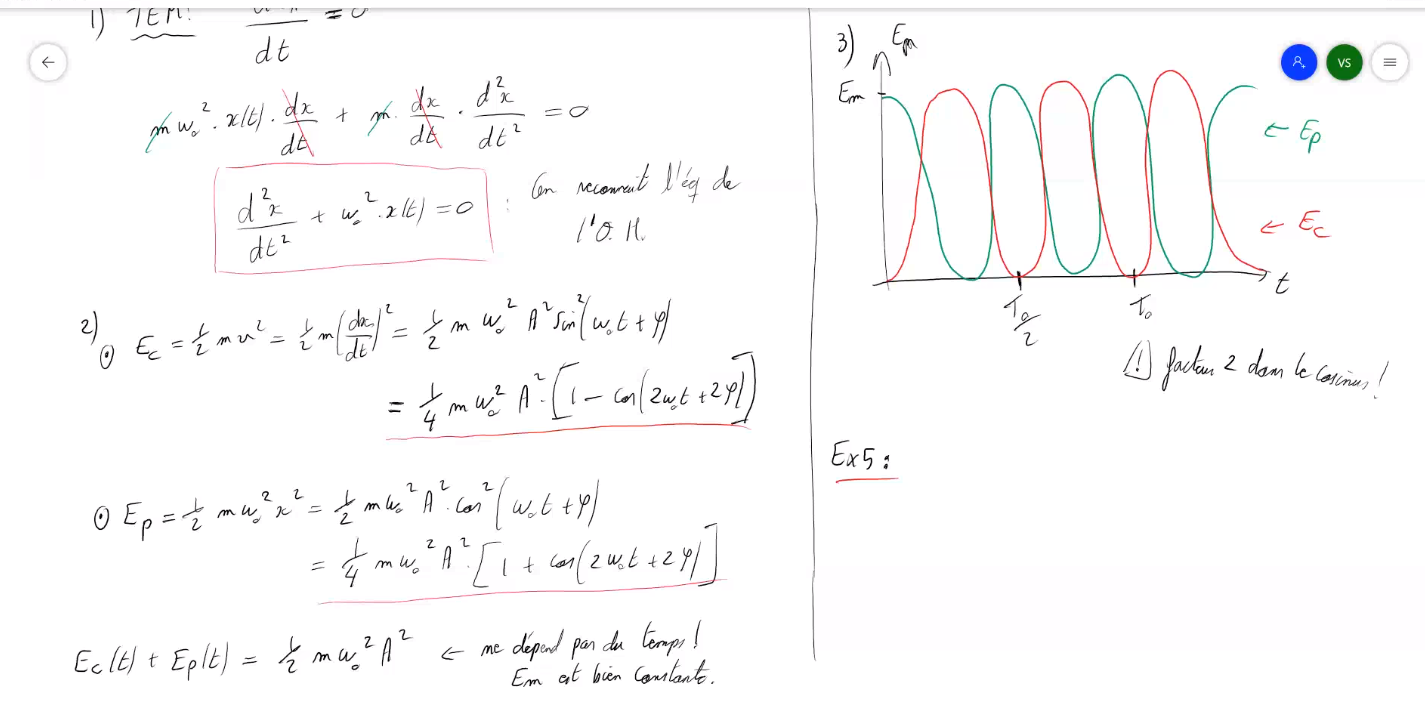 1) TEM:
dt
= 0
m ω₀² . x(t) . dx/dt + m . dx/dt . d²x/dt² = 0
d²x/dt² + ω₀² . x(t) = 0 : On reconnait l'éq de
l'O.H.
2)
⊙ Ec = 1/2 m v² = 1/2 m (dx/dt)² = 1/2 m ω₀² A² sin²(ω₀t + φ)
= 1/4 m ω₀² A² . [1 – cos(2ω₀t + 2φ)]
⊙ Ep = 1/2 m ω₀² x² = 1/2 m ω₀² A² . cos²(ω₀t + φ)
= 1/4 m ω₀² A² . [1 + cos(2ω₀t + 2φ)]
Ec(t) + Ep(t) = 1/2 m ω₀² A² ← ne dépend pas du temps !
Em est bien constante.
3) Em
VS
Em
← Ep
← Ec
t
T₀/2
T₀
⚠ facteur 2 dans le cosinus !
Ex5 :